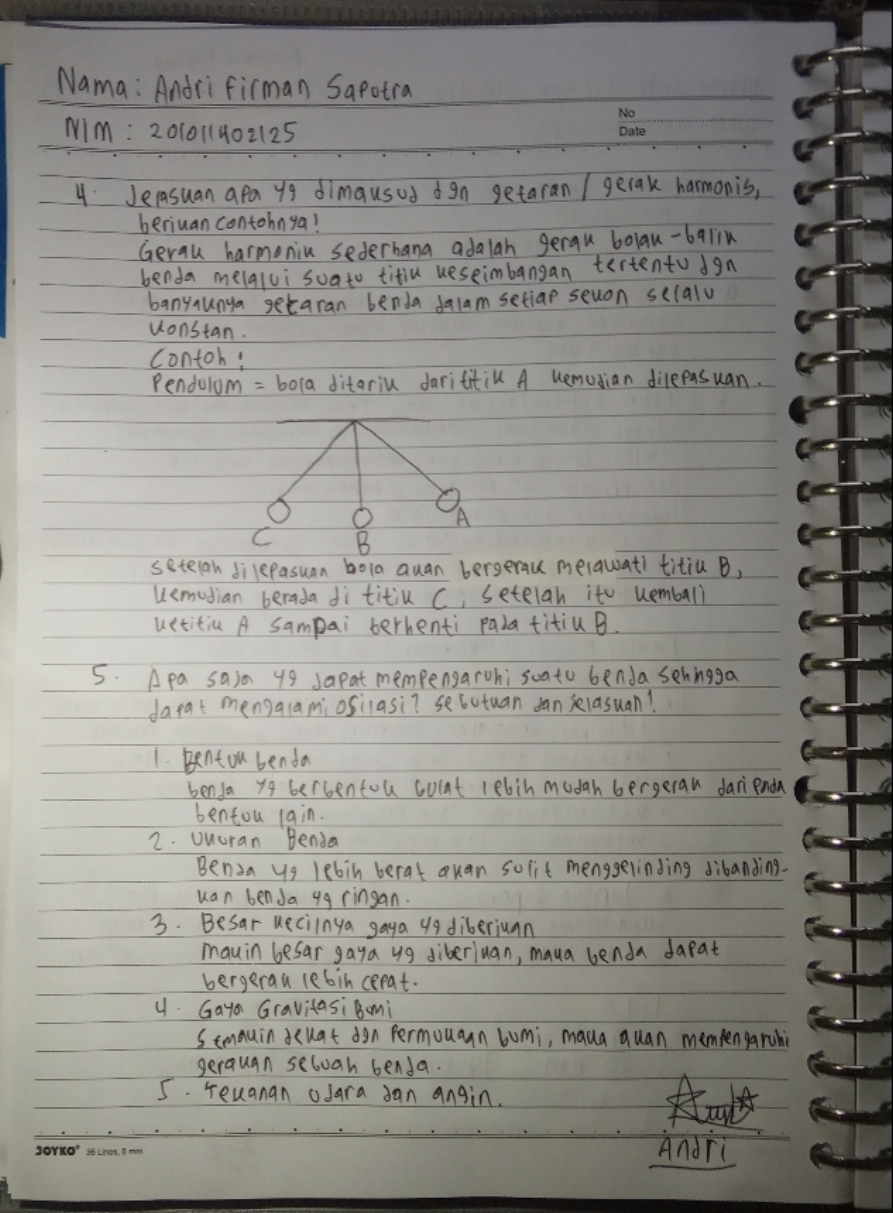 Nama : Andri Firman Saputra
No
NIM : 201011402125
Date
4. Jelaskan apa yg dimaksud dgn getaran / gerak harmonis,
berikan contohnya!
Gerak harmonik sederhana adalah gerak bolak-balik
benda melalui suatu titik keseimbangan tertentu dgn
banyaknya getaran benda dalam setiap sekon selalu
konstan.
Contoh :
Pendulum = bola ditarik dari titik A kemudian dilepaskan.
C
B
A
setelah dilepaskan bola akan bergerak melawati titik B,
kemudian berada di titik C, setelah itu kembali
ketitik A sampai berhenti pada titik B.
5. Apa saja yg dapat mempengaruhi suatu benda sehingga
dapat mengalami osilasi? sebutkan dan jelaskan!
1. Bentuk benda
benda yg berbentuk bulat lebih mudah bergerak dari pada
bentuk lain.
2. Ukuran Benda
Benda yg lebih berat akan sulit menggelinding dibanding-
kan benda yg ringan.
3. Besar kecilnya gaya yg diberikan
makin besar gaya yg diberikan, maka benda dapat
bergerak lebih cepat.
4. Gaya Gravitasi Bumi
Semakin dekat dgn Permukaan bumi, maka akan mempengaruhi
gerakan sebuah benda.
5. Tekanan udara dan angin.
Andri
JOYKO 36 Lines, 6 mm